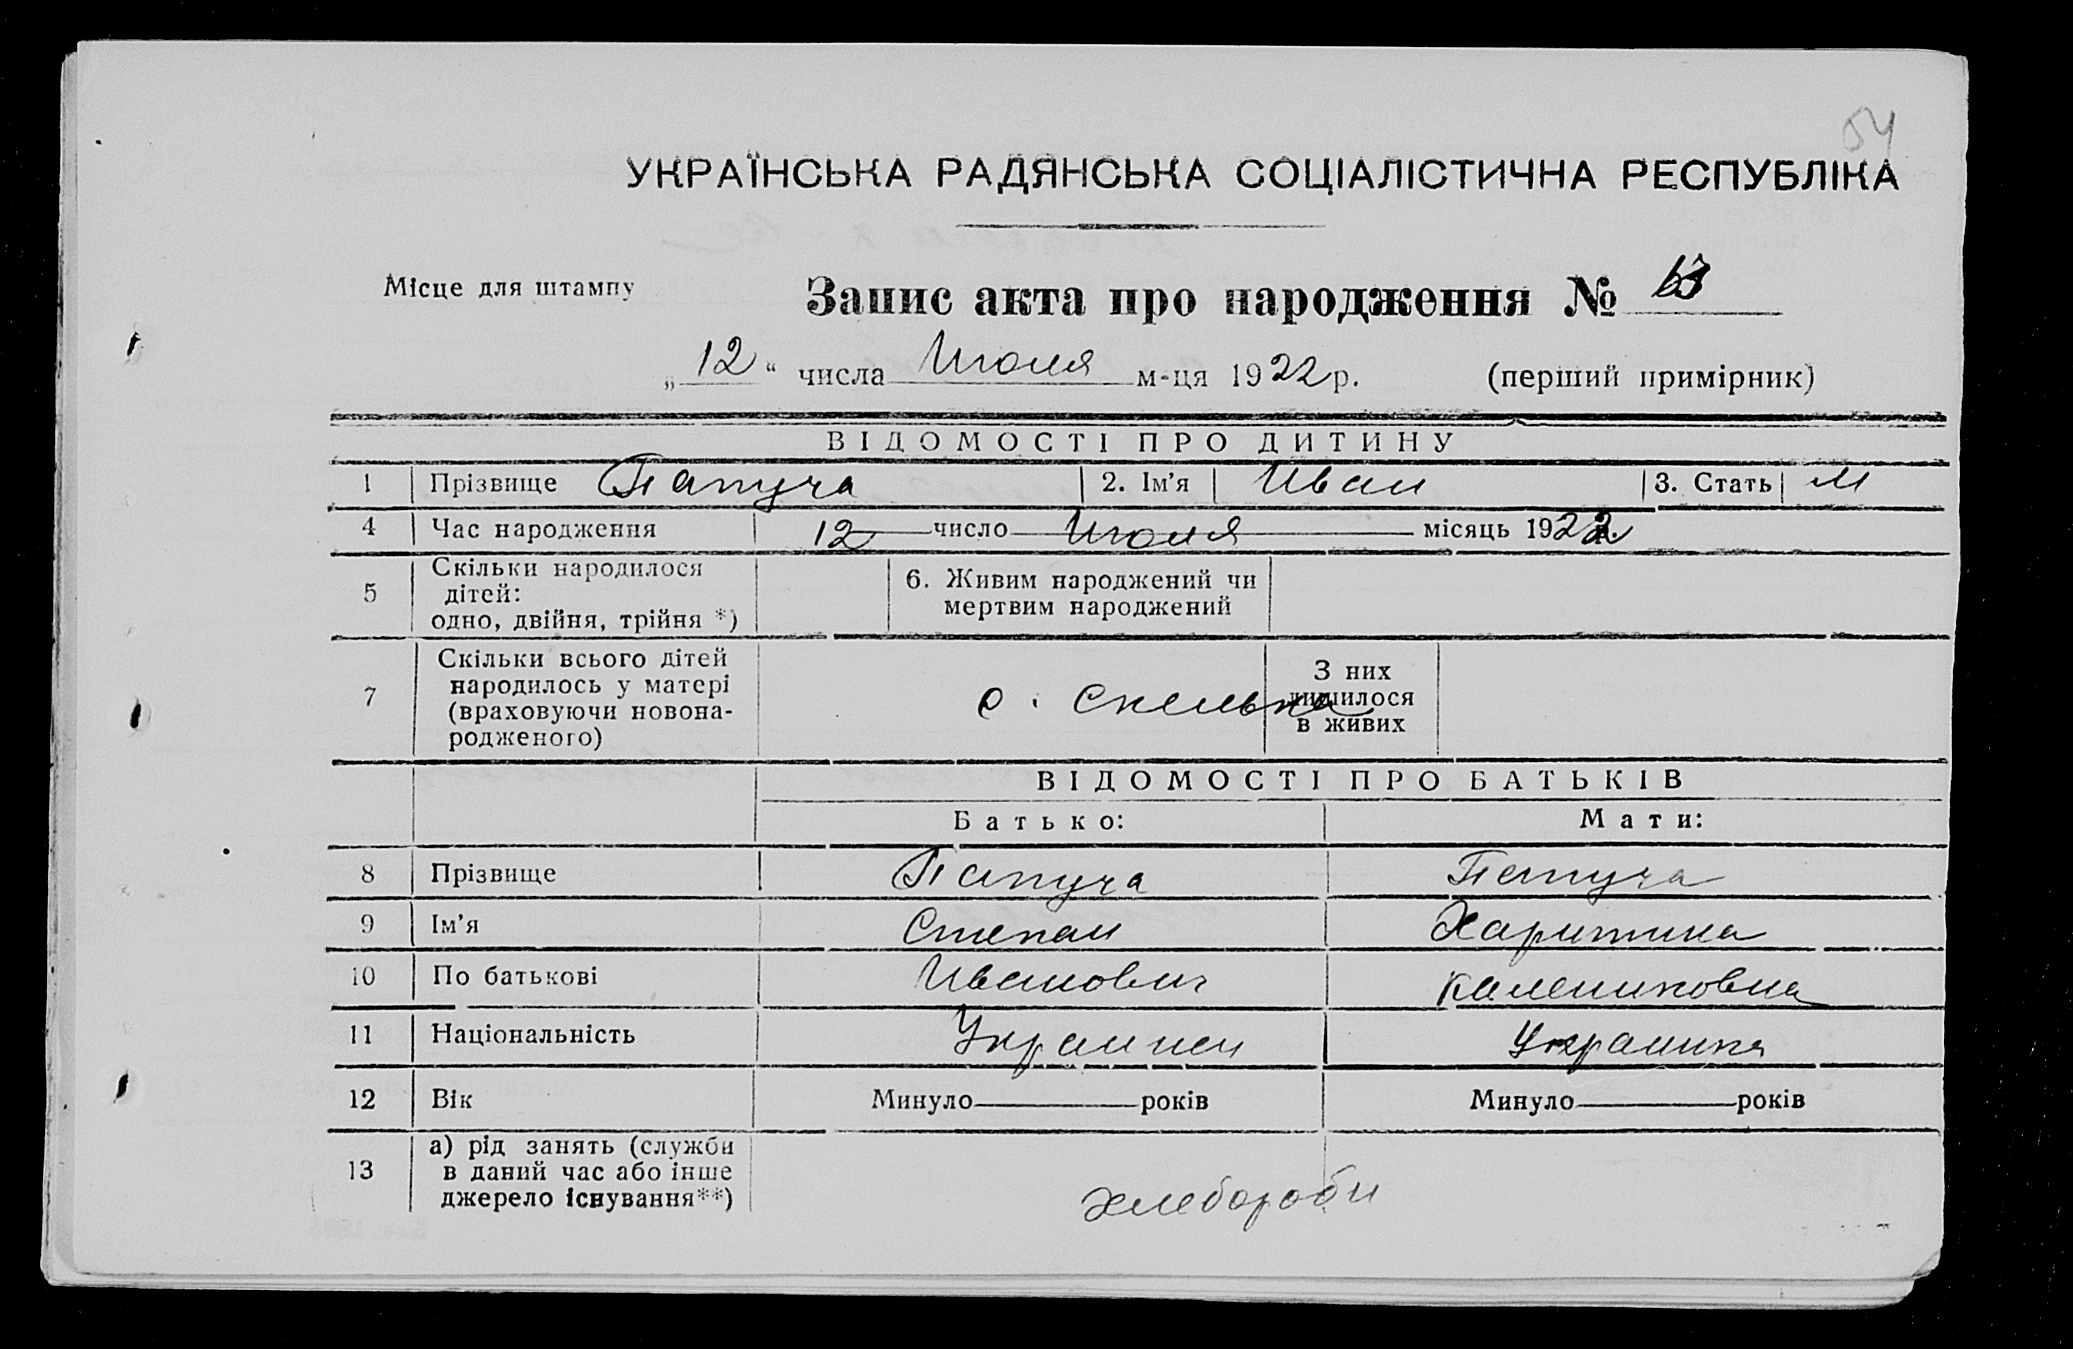 54
УКРАЇНСЬКА РАДЯНСЬКА СОЦІАЛІСТИЧНА РЕСПУБЛІКА
Місце для штампу
Запис акта про народження №
„12“ числа Июля м-ця 1922 р. (перший примірник)
ВІДОМОСТІ ПРО ДИТИНУ
1 Прізвище Папуча 2. Ім’я Иван 3. Стать М
4 Час народження 12 число Июля місяць 1922
5 Скільки народилося дітей: одно, двійня, трійня *) 6. Живим народжений чи мертвим народжений
7 Скільки всього дітей народилось у матері (враховуючи новонародженого) с. Скелька З них лишилося в живих
ВІДОМОСТІ ПРО БАТЬКІВ
Батько: Мати:
8 Прізвище Папуча Папуча
9 Ім’я Степан Харитина
10 По батькові Иванович Калениковна
11 Національність Украинец Украинка
12 Вік Минуло років Минуло років
13 а) рід занять (служби в даний час або інше джерело існування**) хлебороби